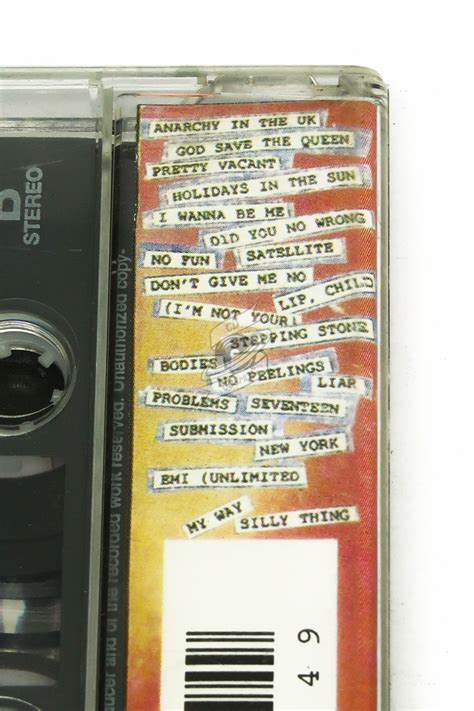 ANARCHY IN THE UK
GOD SAVE THE QUEEN
PRETTY VACANT
HOLIDAYS IN THE SUN
I WANNA BE ME
DID YOU NO WRONG
NO FUN SATELLITE
DON'T GIVE ME NO
LIP, CHILD
(I'M NOT YOUR)
STEPPING STONE
BODIES
NO FEELINGS
LIAR
PROBLEMS SEVENTEEN
SUBMISSION
NEW YORK
EMI (UNLIMITED
MY WAY
SILLY THING
4 9
STEREO
ucer and of the recorded work reserved. Unauthorized copy-